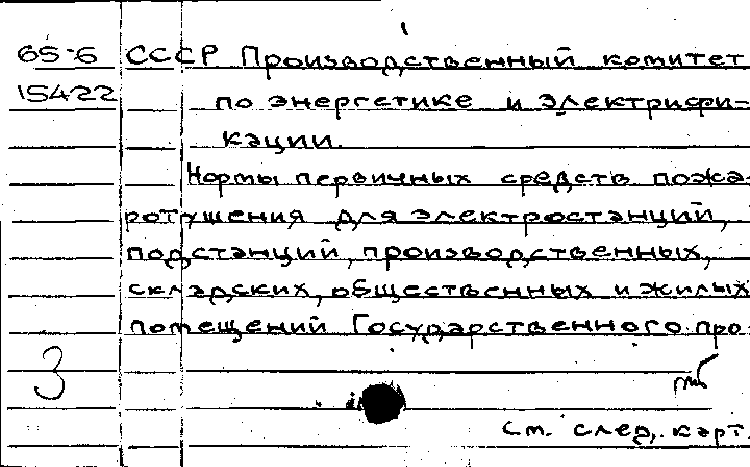 65-6 СССР Производственный комитет
15422 по энергетике и электрифи-
кации.
Нормы первичных средств пожа-
ротушения для электростанций,
подстанций, производственных,
складских, общественных и жилых
помещений Государственного про-
3
см. след. карт.